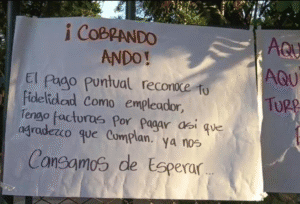 ¡COBRANDO
ANDO!
El Pago puntual reconoce tu
fidelidad como empleador,
Tengo facturas por pagar asi que
agradezco que cumplan. ya nos
Cansamos de Esperar...
AQU
AQU
TURB